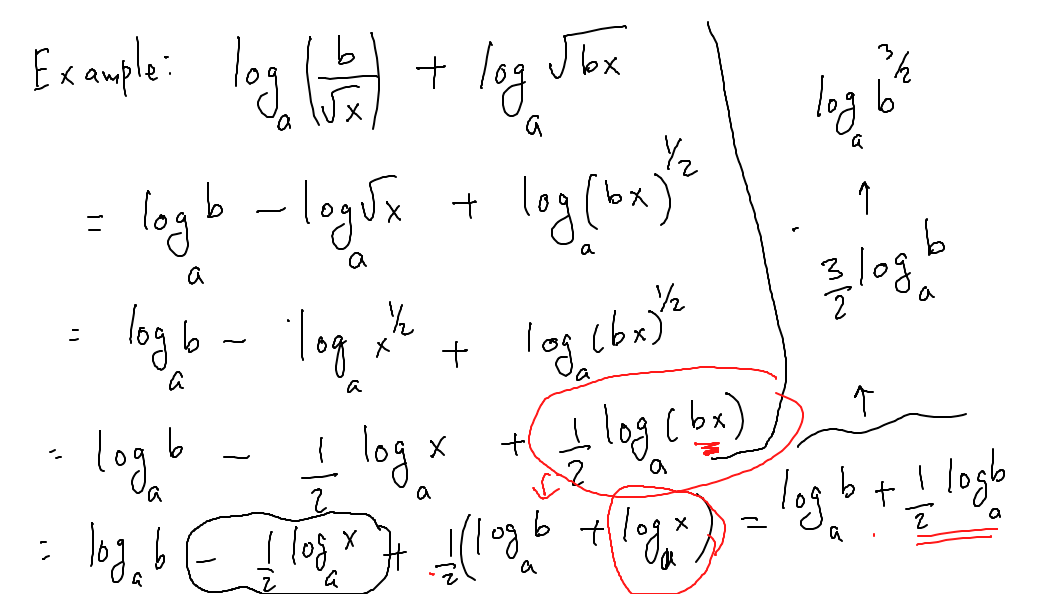 Example: logₐ(b/√x) + logₐ √bx
= logₐ b − logₐ √x + logₐ (bx)^1/2
= logₐ b − logₐ x^1/2 + logₐ (bx)^1/2
= logₐ b − 1/2 logₐ x + 1/2 logₐ (bx)
= logₐ b − 1/2 logₐ x + 1/2 (logₐ b + logₐ x) = logₐ b + 1/2 logₐ b
↑
3/2 logₐ b
↑
logₐ b^3/2